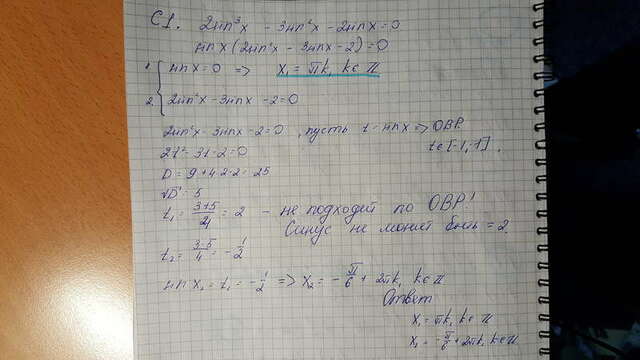 C1. 2sin³x - 3sin²x - 2sinx = 0
sinx (2sin²x - 3sinx - 2) = 0
1 { sinx = 0 => x = πk, k∈Z
2 { 2sin²x - 3sinx - 2 = 0
2sin²x - 3sinx - 2 = 0, пусть t = sinx => ОВР t∈[-1;1].
2t² - 3t - 2 = 0
D = 9 + 4·2·2 = 25
√D = 5
t₁ = (3+5)/4 = 2 - не подходит по ОВР!
Синус не может быть = 2.
t₂ = (3-5)/4 = -1/2
sin x₂ = t₂ = -1/2 => x₂ = -π/6 + 2πk, k∈Z
Ответ:
x = πk, k∈Z
x₂ = -π/6 + 2πk, k∈Z